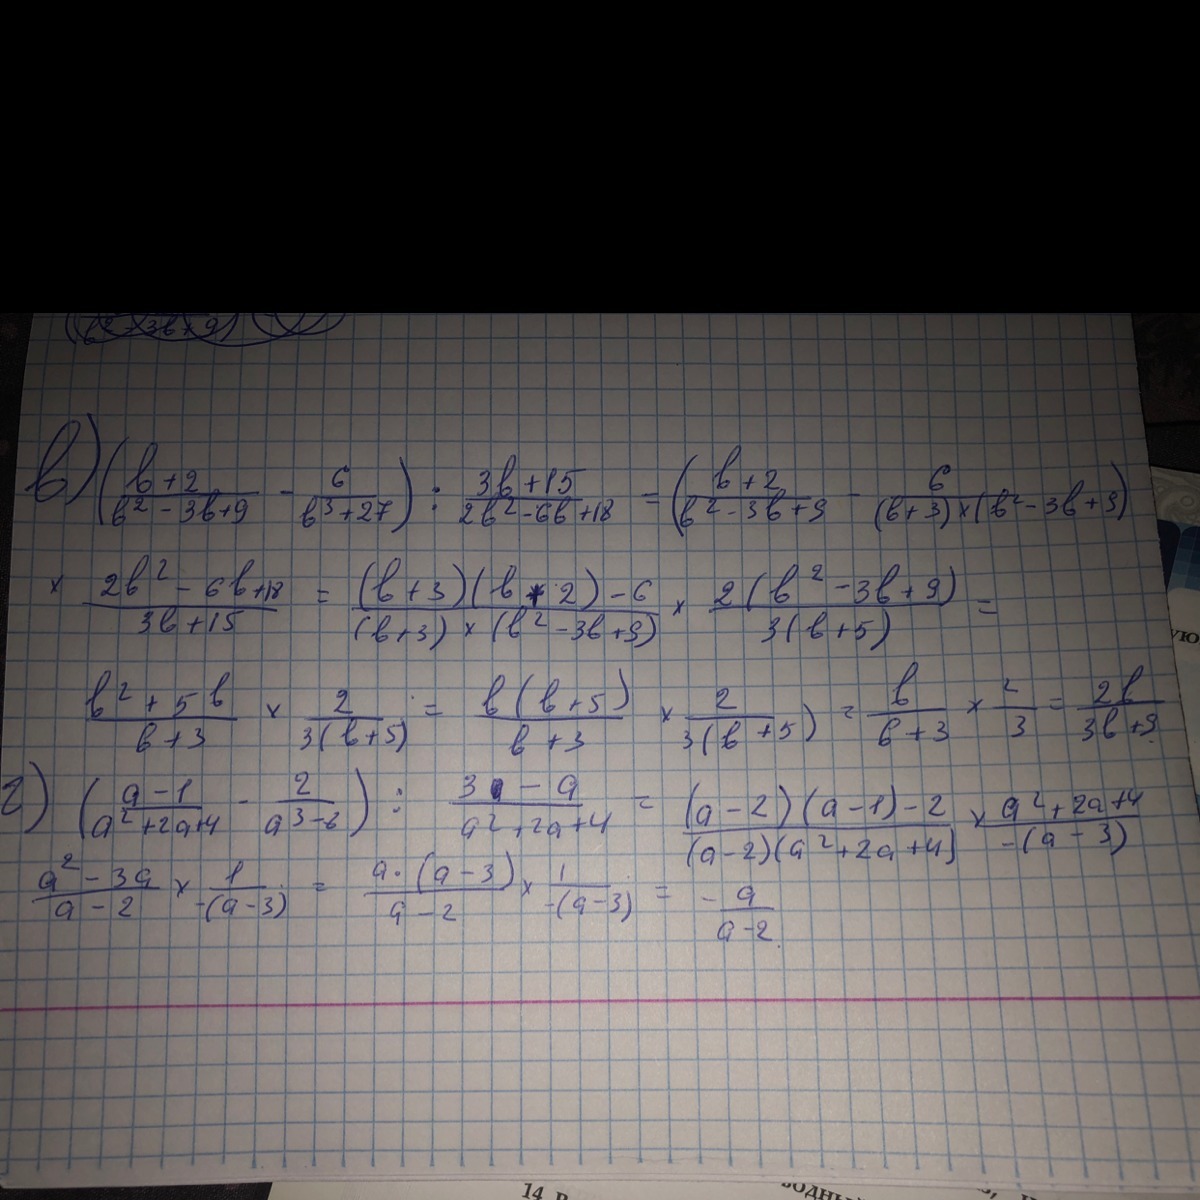 (b²-3b+9)
в) ((b+2)/(b²-3b+9) - 6/(b³+27)) : (3b+15)/(2b²-6b+18) = ((b+2)/(b²-3b+9) - 6/((b+3)×(b²-3b+9))
× (2b²-6b+18)/(3b+15) = ((b+3)(b+2)-6)/((b+3)×(b²-3b+9)) × 2(b²-3b+9)/3(b+5) =
(b²+5b)/(b+3) × 2/3(b+5) = b(b+5)/(b+3) × 2/3(b+5) = b/(b+3) × 2/3 = 2b/(3b+9)
г) ((a-1)/(a²+2a+4) - 2/(a³-8)) : (3-a)/(a²+2a+4) = ((a-2)(a-1)-2)/((a-2)(a²+2a+4)) × (a²+2a+4)/(-(a-3))
(a²-3a)/(a-2) × 1/(-(a-3)) = a·(a-3)/(a-2) × 1/(-(a-3)) = -a/(a-2)
14